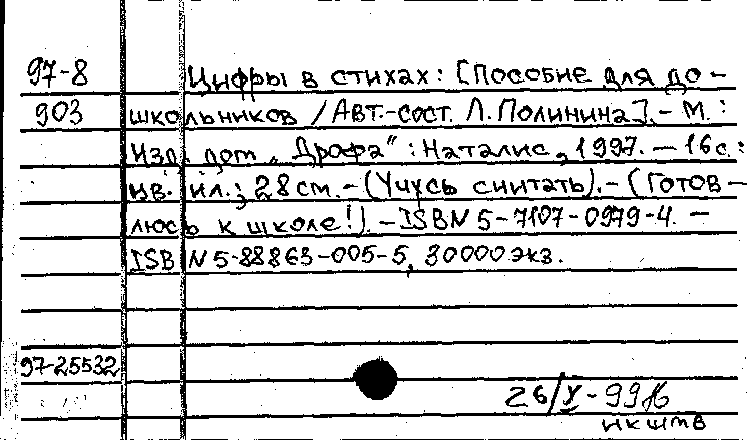 97-8 Цифры в стихах: [Пособие для до-
903 школьников / Авт.-сост. Л. Полинина]. - М.:
Изд. дом „Дрофа“ : Наталис, 1997. - 16 с.:
цв. ил.; 28 см. - (Учусь считать). - (Готов-
люсь к школе!). - ISBN 5-7107-0979-4. -
ISBN 5-88863-005-5, 30000 экз.
97-25532
26/X-99